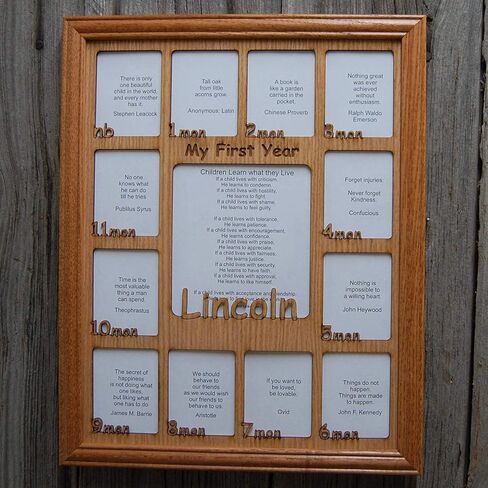 There is only
one beautiful
child in the world,
and every mother
has it.
Stephen Leacock
nb
Tall oak
from little
acorns grow.
Anonymous: Latin
1mon
A book is
like a garden
carried in the
pocket
Chinese Proverb
2mon
Nothing great
was ever
achieved
without
enthusiasm.
Ralph Waldo
Emerson
3mon
My First Year
Children Learn what they Live
If a child lives with criticism,
He learns to condemn.
If a child lives with hostility,
He learns to fight.
If a child lives with shame,
He learns to feel guilty.
If a child lives with tolerance,
He learns patience.
If a child lives with encouragement,
He learns confidence.
If a child lives with praise,
He learns to appreciate.
If a child lives with fairness,
He learns justice.
If a child lives with security,
He learns to have faith.
If a child lives with approval,
He learns to like himself.
If a child lives with acceptance and friendship,
Lincoln
Forget injuries:
Never forget
Kindness.
Confucious
4mon
Nothing is
impossible to
a willing heart.
John Heywood
5mon
Things do not
happen.
Things are made
to happen.
John F. Kennedy
6mon
If you want to
be loved,
be lovable.
Ovid
7mon
We should
behave to
our friends
as we would wish
our friends to
behave to us.
Aristotle
8mon
The secret of
happiness
is not doing what
one likes,
but liking what
one has to do.
James M. Barrie
9mon
Time is the
most valuable
thing a man
can spend.
Theophrastus
10mon
No one
knows what
he can do
till he tries
Publilius Syrus
11mon